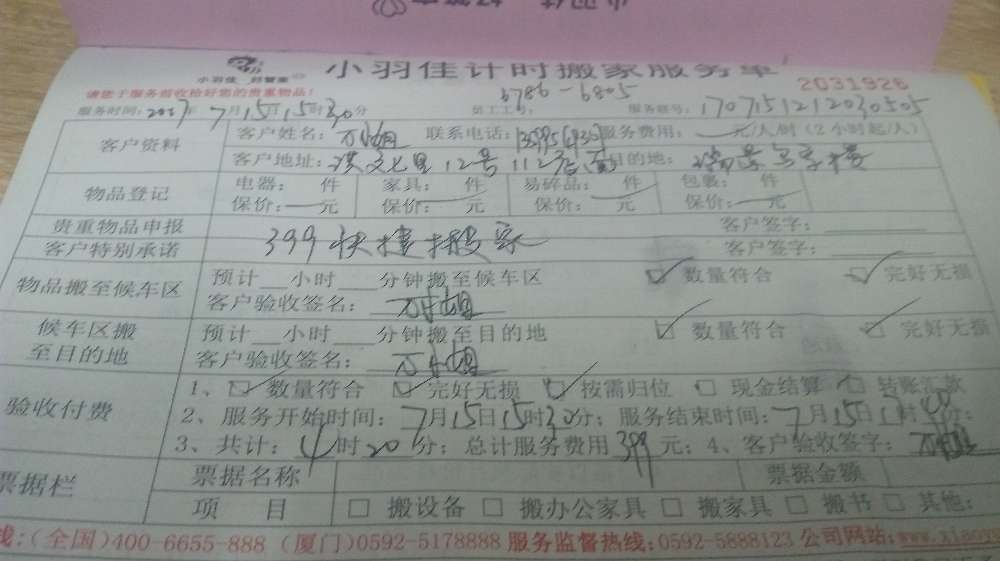 小羽佳计时搬家服务单
小羽佳 好管家
请您于服务前收拾好您的贵重物品!
2031926
6786-6805
服务时间:2017年7月15日15时30分 员工工号: 服务账号:170715121203 0505
客户资料
客户姓名: 联系电话: 服务费用: 元/人/时(2小时起/人)
客户地址: 洪文七里12号112店面 目的地: 瑞景写字楼
物品登记
电器: 件 家具: 件 易碎品: 件 包裹: 件
保价: 元 保价: 元 保价: 元 保价: 元
贵重物品申报 客户签字:
客户特别承诺 399快捷搬家 客户签字:
物品搬至候车区
预计 小时 分钟搬至候车区 数量符合 完好无损
客户验收签名:
候车区搬至目的地
预计 小时 分钟搬至目的地 数量符合 完好无损
客户验收签名:
验收付费
1、 数量符合 完好无损 按需归位 现金结算 转账汇款
2、服务开始时间:7月15日15时30分;服务结束时间:7月15日 时 分;
3、共计:4时20分;总计服务费用399元;4、客户验收签字:
票据栏
票据名称 票据金额
项 目 搬设备 搬办公家具 搬家具 搬书 其他:
线:(全国)400-6655-888 (厦门)0592-5178888 服务监督热线:0592-5888123 公司网站:www.xiaoy